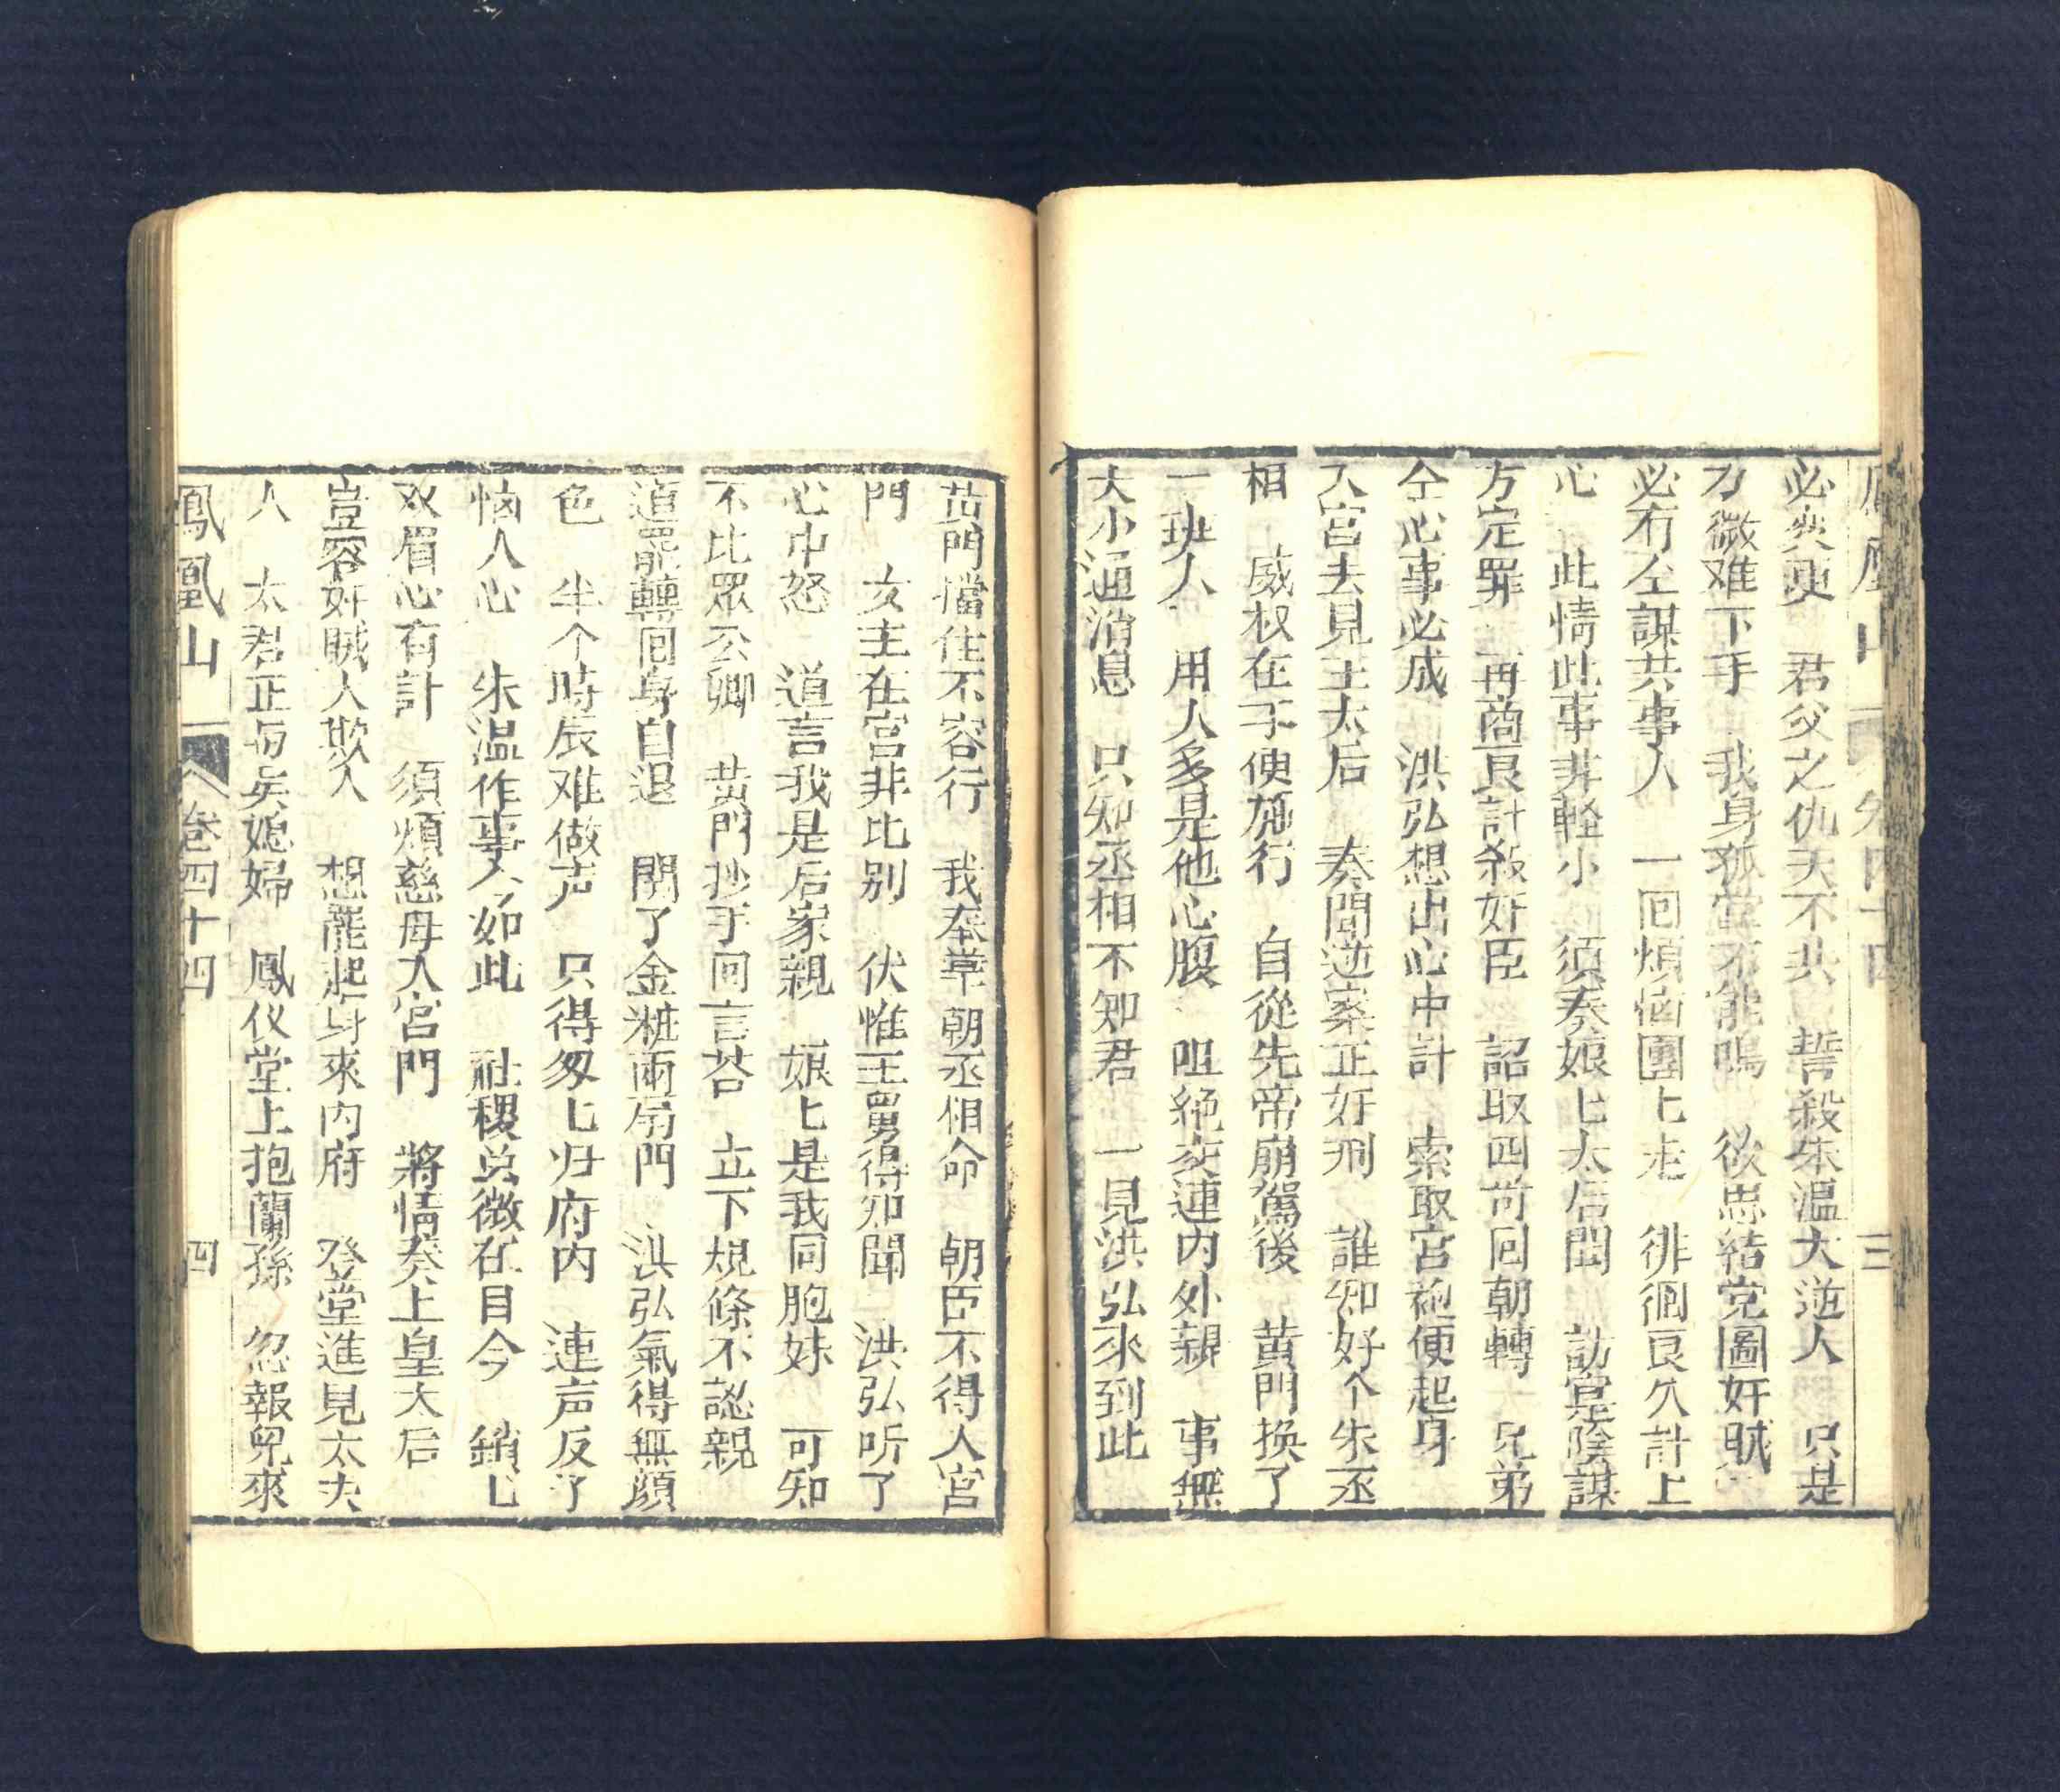 鳳凰山 卷四十四 三
必爽更 君父之仇天不共 誓殺朱温大逆人 只是
力微难下手 我身孤掌不能鳴 欲思結党圖奸賊
必冇仝謀共事人 一回煩恼團匕走 徘徊良久計上
心 此情此事非軽小 須奏娘匕太后聞 訪宣陰謀
方定罪 再商良計殺奸臣 詔取四前回朝轉 兄弟
仝心事必成 洪弘想出心中計 索取宫袍便起身
入宫去見王太后 奏聞逆案正好刑 誰知好个朱丞
相 威权在手便施行 自從先帝崩駕後 黄門换了
一班人 用人多是他心腹 咀絶交連内外親 事無
大小通消息 只知丞相不知君 一見洪弘來到此
黄門擋住不容行 我奉華朝丞相命 朝臣不得入宫
門 女主在宫非比别 伏惟王舅得知聞 洪弘听了
心中怒 道言我是后家親 娘匕是我同胞妹 可知
不比眾公卿 黄門抄手回言荅 立下規條不認親
道罷轉囘身自退 関了金粧兩扇門 洪弘氣得無顔
色 半个時辰难做声 只得匆匕归府内 連声反了
恼人心 朱温作事人如此 社稷兑徴在目今 鎖匕
双眉心有計 須煩慈母入宫門 將情奏上皇太后
豈容奸賊人欺人 想罷起身來内府 登堂進見太夫
人 太君正与吳媳婦 鳳仪堂上抱蘭孫 忽報兒來
鳳凰山 卷四十四 四